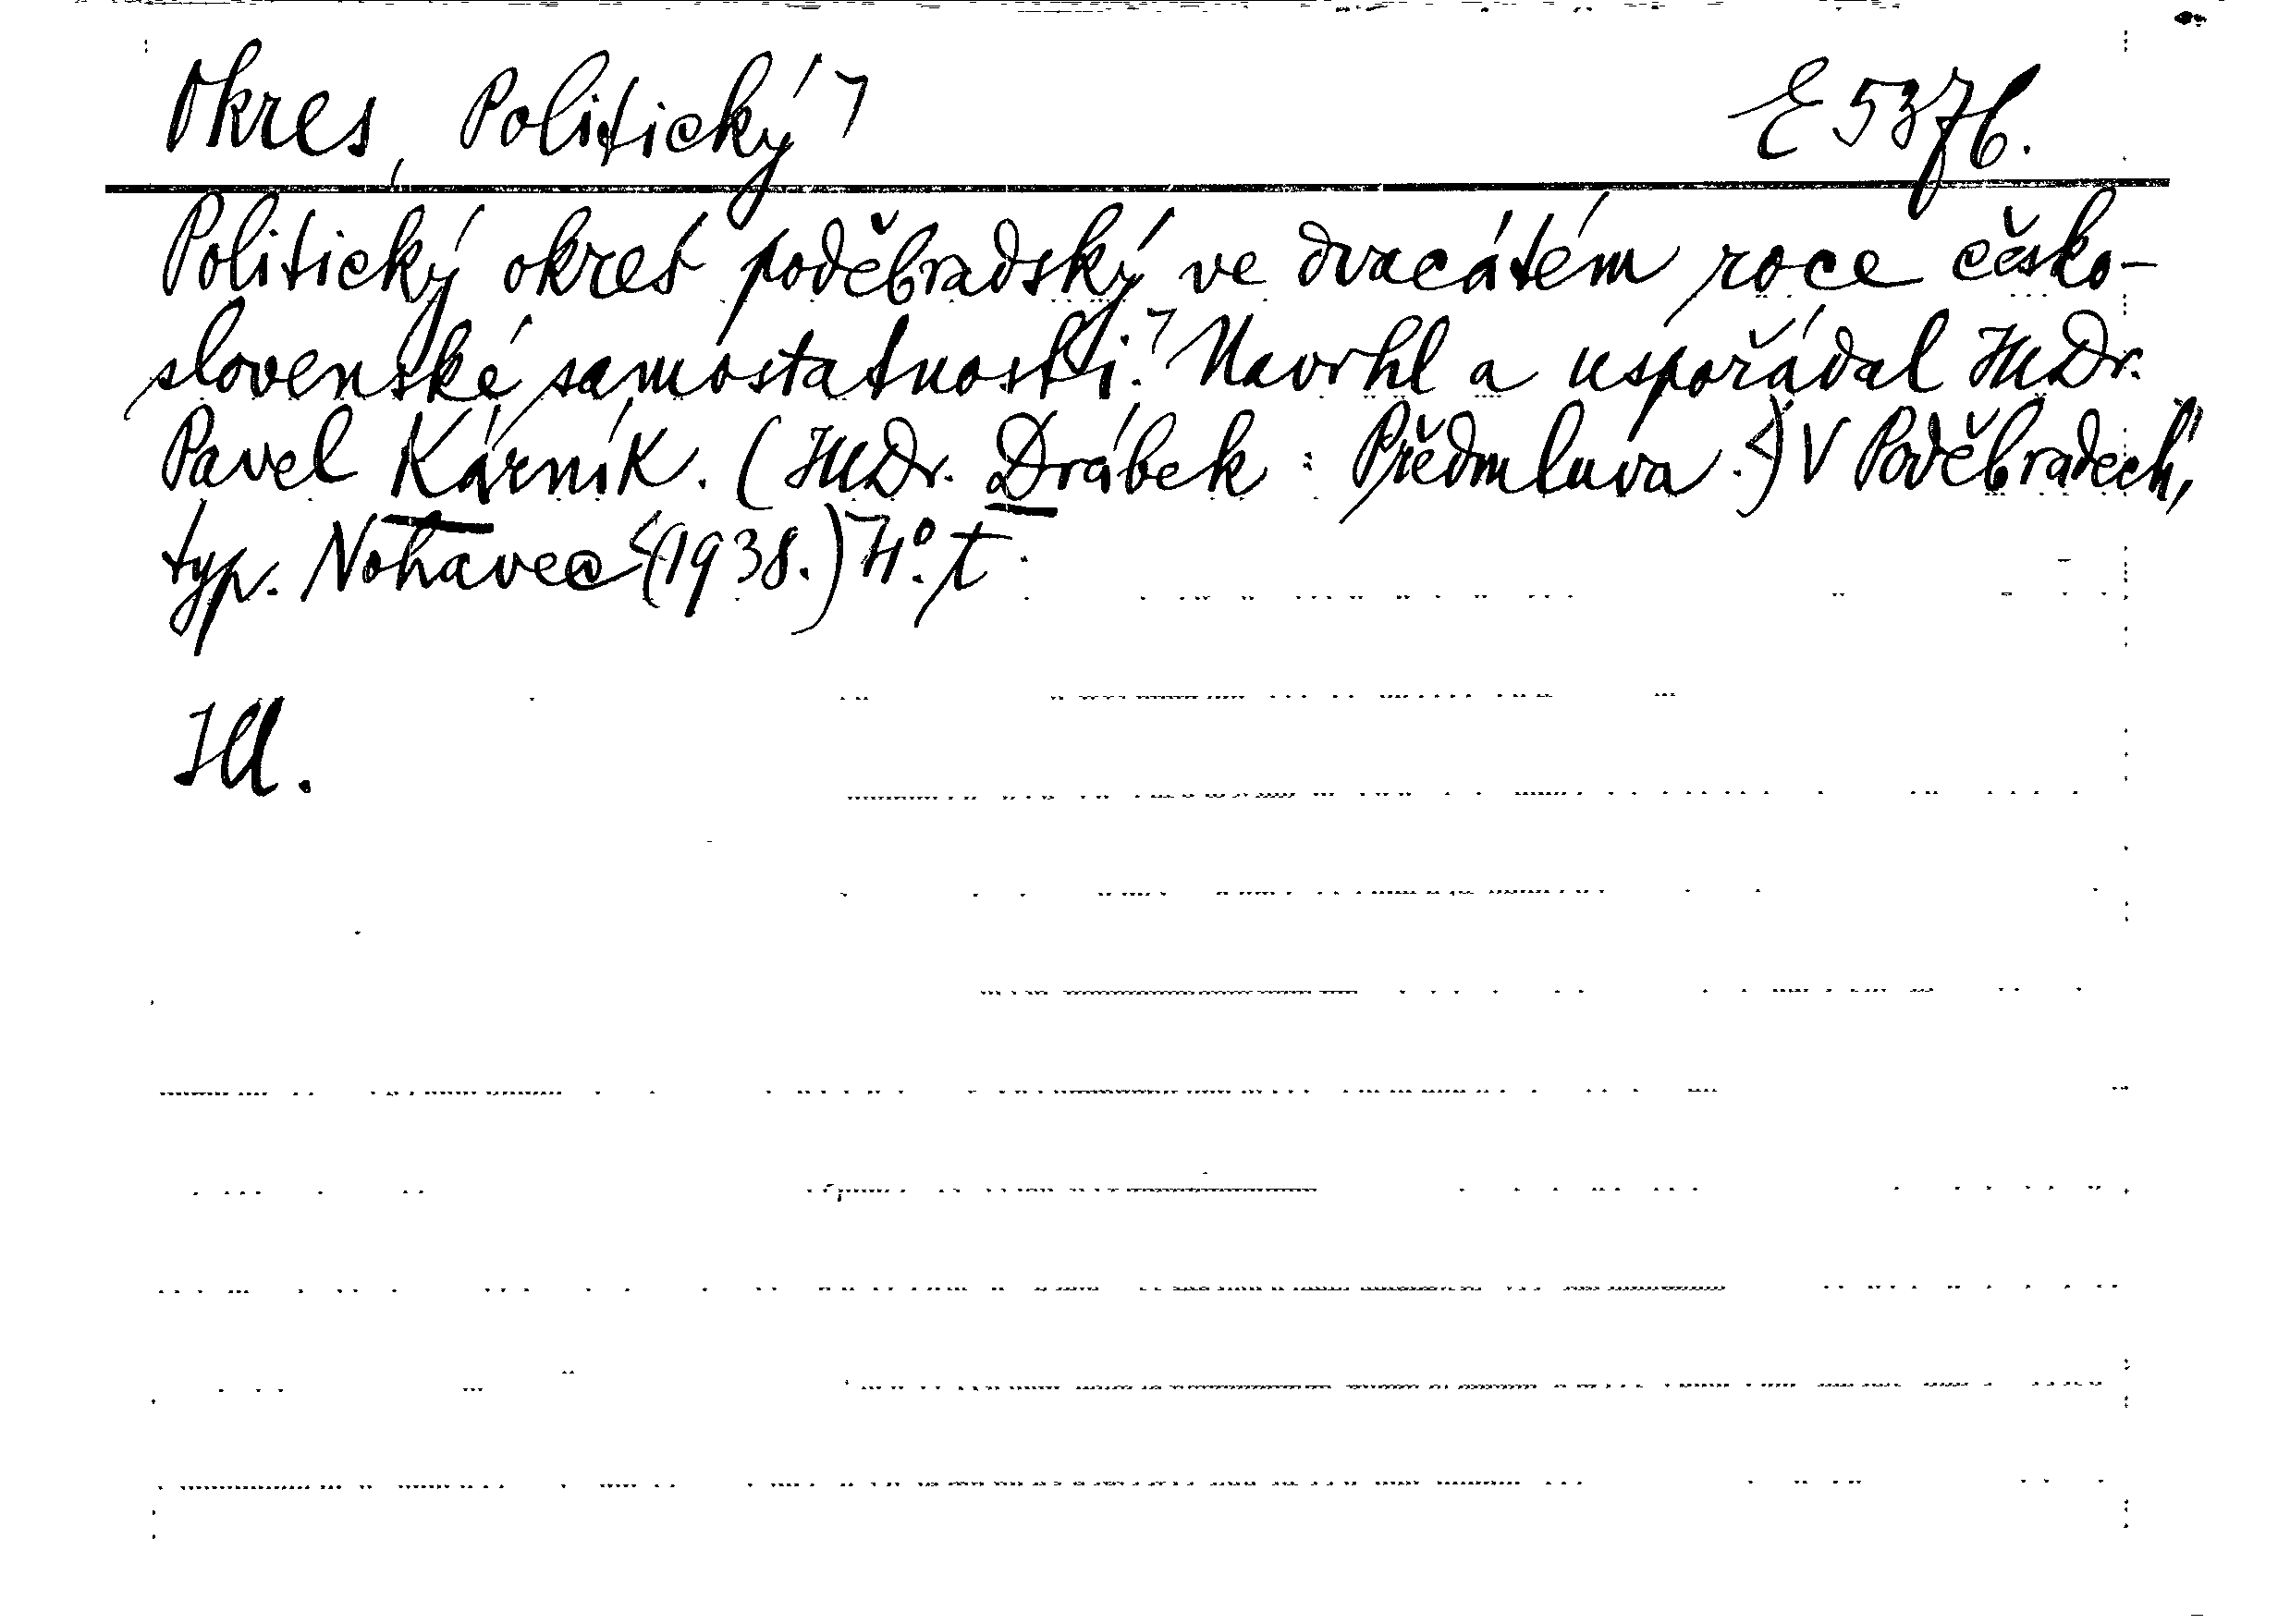 Okres, Politický ⁊ E 5376.
Politický okres poděbradský ve dvacátém roce česko-
slovenské samostatnosti. ⁊ Navrhl a uspořádal JUDr.
Pavel Kárník. (JUDr. Drábek: Předmluva.) V Poděbradech,
typ. Nohavec (1938.) 4°. t.
Ill.